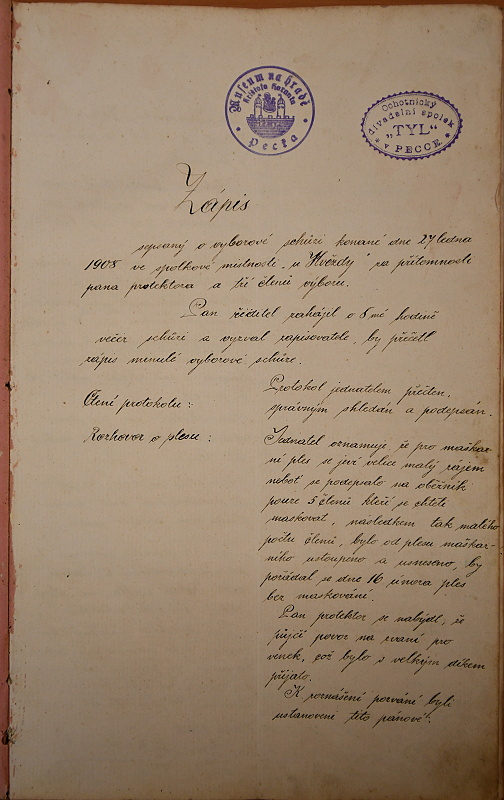 Museum na hradě
Kryštofa Haranta
Pecka
Ochotnický
divadelní spolek
„TYL“
v PECCE
Zápis
sepsaný o výborové schůzi konané dne 27 ledna
1908 ve spolkové místnosti „u Hvězdy“ za přítomnosti
pana protektora a tří členů výboru.
Pan ředitel zahájil o 8 mé hodině
večer schůzi a vyzval zapisovatele, by přečetl
zápis minulé výborové schůze.
Čtení protokolu:
Protokol jednatelem přečten,
správným shledán a podepsán.
Rozhovor o plesu:
Jednatel oznamuje, že pro maškar-
ní ples se jeví velice malý zájem
neboť se podepsalo na oběžník
pouze 5 členů kteří se chtěli
maskovat, následkem tak malého
počtu členů, bylo od plesu maškar-
ního ustoupeno a usneseno, by
pořádal se dne 16 února ples
bez maskování.
Pan protektor se nabýdl, že
půjčí povoz na zvaní pro
venek, což bylo s velkým díkem
přijato.
K roznášení pozvání byli
ustanoveni tito pánové: